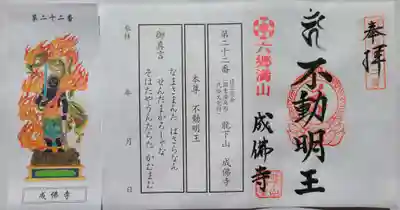 奉拝
不動明王
六郷満山
成佛寺
第二十二番 龍下山 成佛寺
本尊 不動明王
御真言
なまさまんた ばさらなん
せんだまかろしゃな
そはたやうんたらた かむまむ
年 月 日
第二十二番
成佛寺